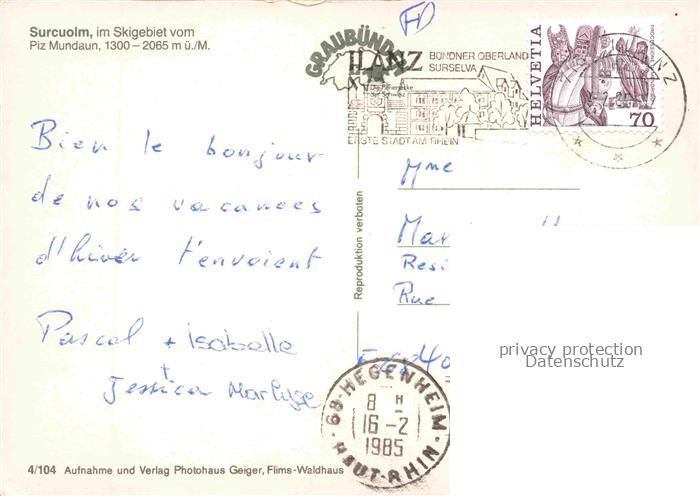 Surcuolm, im Skigebiet vom
Piz Mundaun, 1300 – 2065 m ü./M.
FD
GRAUBÜNDEN
Die Ferienecke
der Schweiz
ILANZ BÜNDNER OBERLAND
SURSELVA
ERSTE STADT AM RHEIN
HELVETIA
70
Bien le bonjour
de nos vacances
d'hiver t'envoient
Pascal + isabelle
+
Jessica Marlyse
Reproduktion verboten
Mme
Mar
Resi
Rue
privacy protection
Datenschutz
68-HEGENHEIM
8 H
16-2
1985
HAUT-RHIN
4/104 Aufnahme und Verlag Photohaus Geiger, Flims-Waldhaus